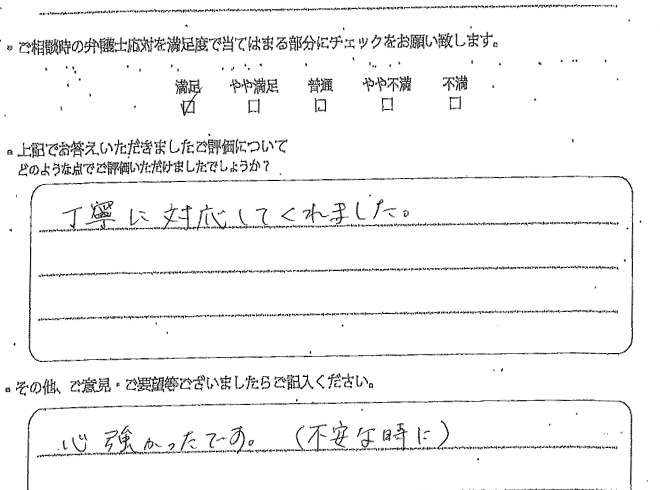 ・ご相談時の弁護士応対を満足度で当てはまる部分にチェックをお願い致します。
満足 やや満足 普通 やや不満 不満
☑ □ □ □ □
・上記でお答えいただきましたご評価について
どのような点でご評価いただけましたでしょうか？
丁寧に対応してくれました。
・その他、ご意見・ご要望等ございましたらご記入ください。
心強かったです。（不安な時に）